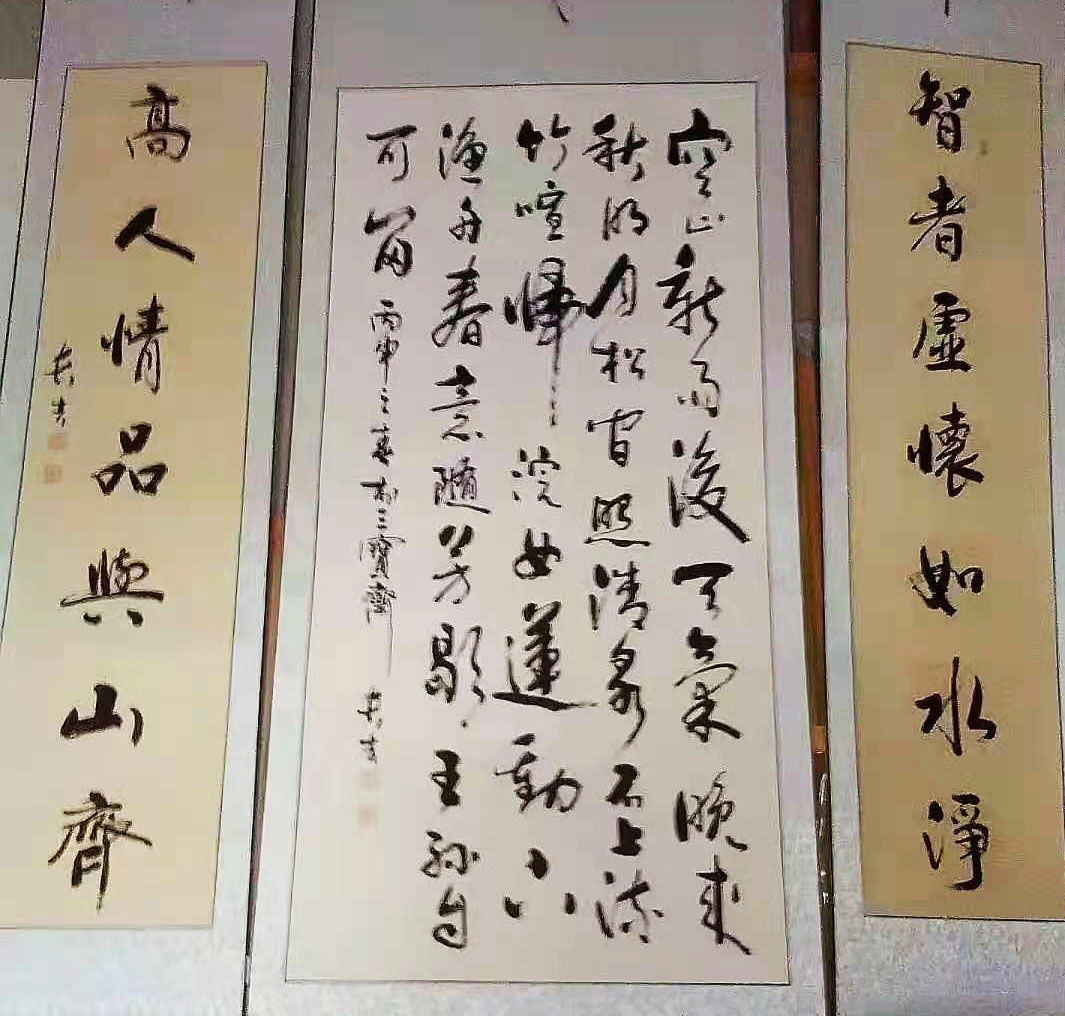 智者虛懷如水淨
空山新雨後天氣晚來
秋明月松間照清泉石上流
竹喧歸浣女蓮動下
漁舟春意隨芳歇王孫自
可留 丙申之春於三寶齋
高人情品與山齊